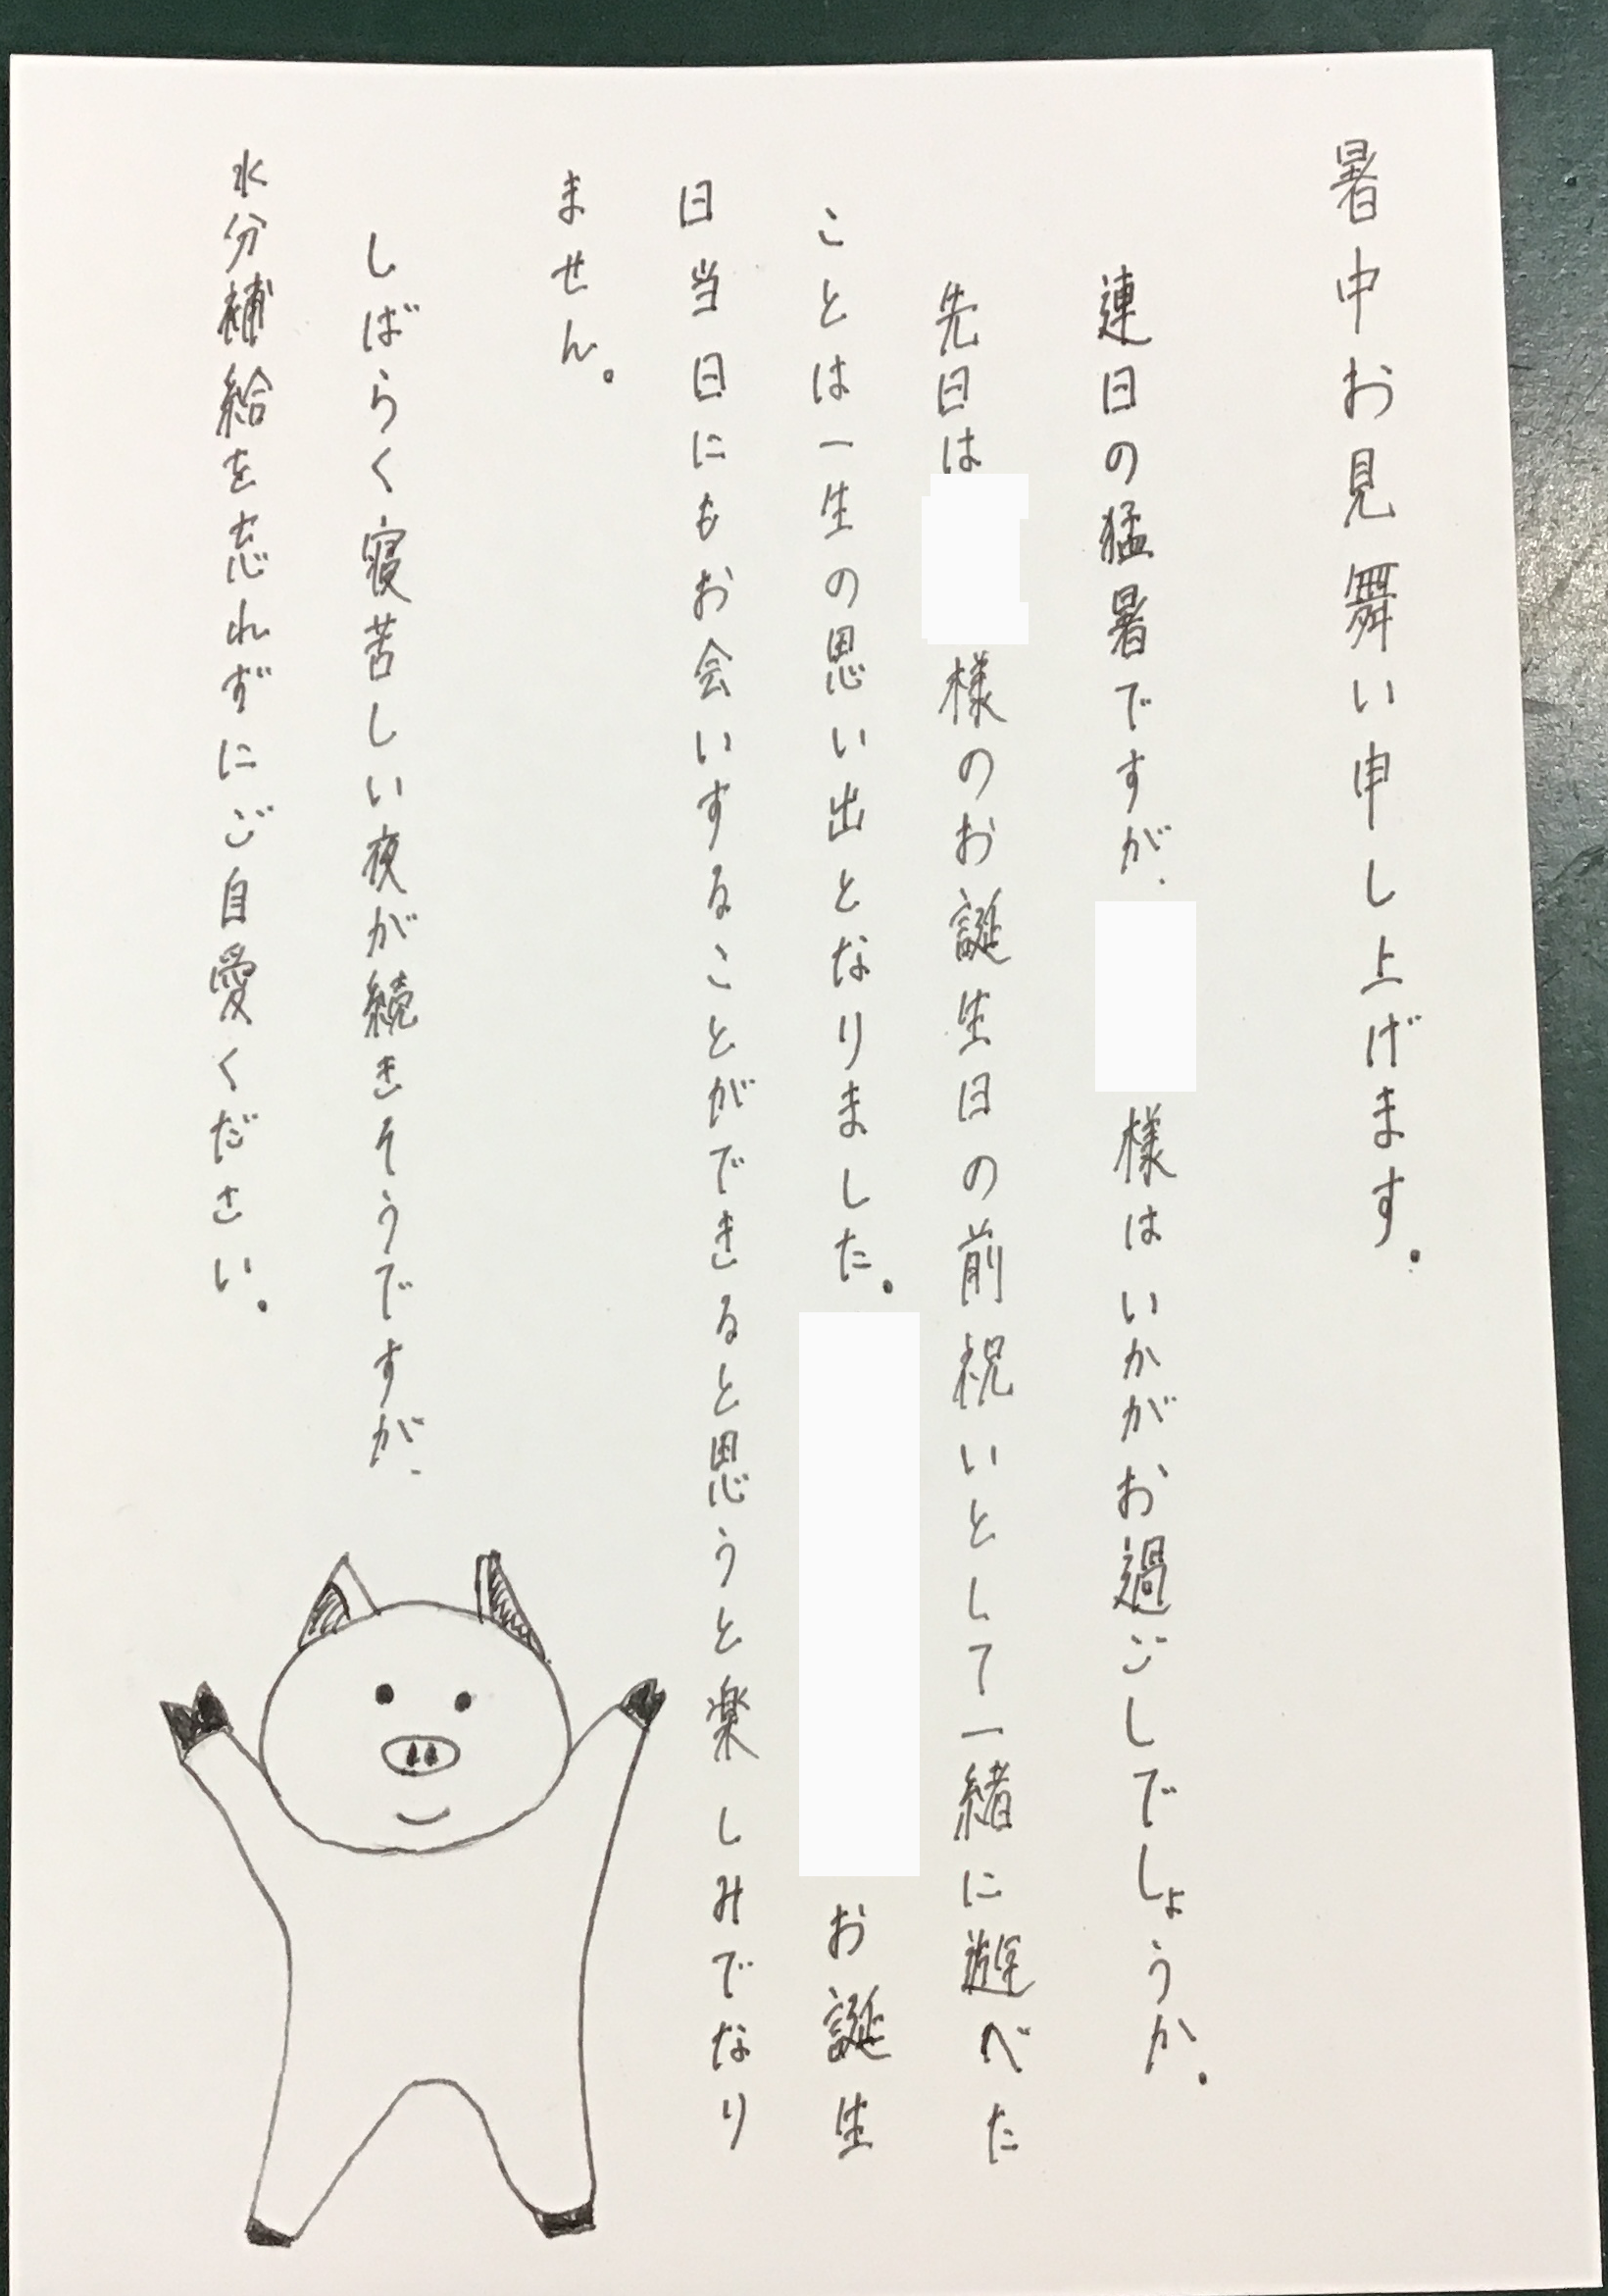 暑中お見舞い申し上げます。
連日の猛暑ですが、様はいかがお過ごしでしょうか。
先日は様のお誕生日の前祝いとして一緒に遊べた
ことは一生の思い出となりました。お誕生
日当日にもお会いすることができると思うと楽しみでなり
ません。
しばらく寝苦しい夜が続きそうですが、
水分補給を忘れずにご自愛ください。